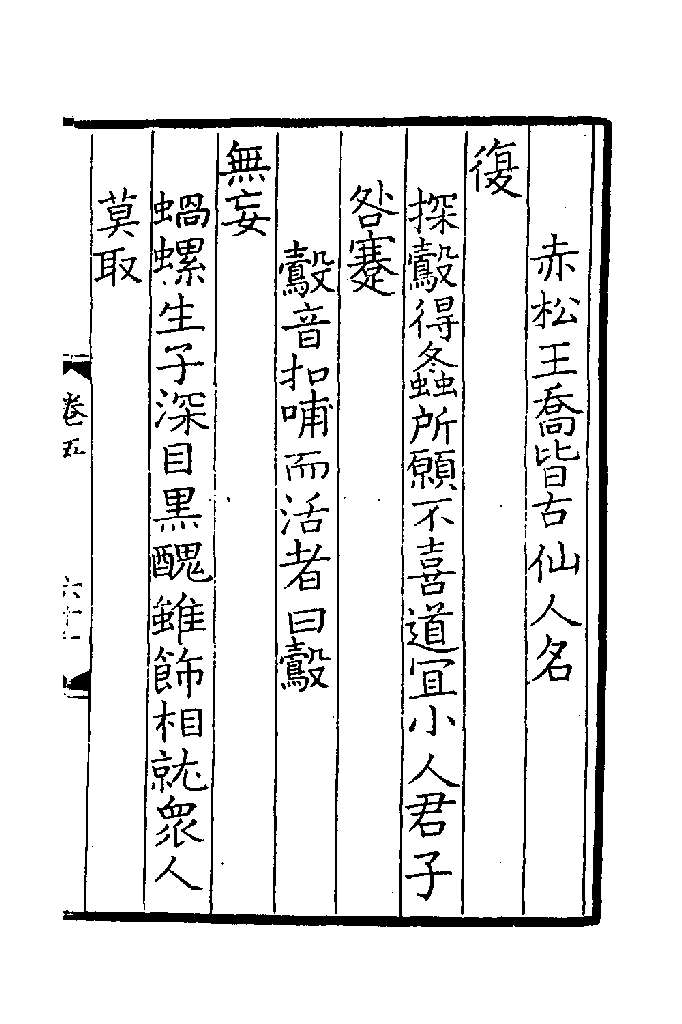 赤松王喬皆古仙人名
復
探鷇得螽所願不喜道冝小人君子
咎蹇
鷇音扣哺而活者曰鷇
無妄
蝸螺生子深目黑醜雖飾相就衆人
莫取
卷五